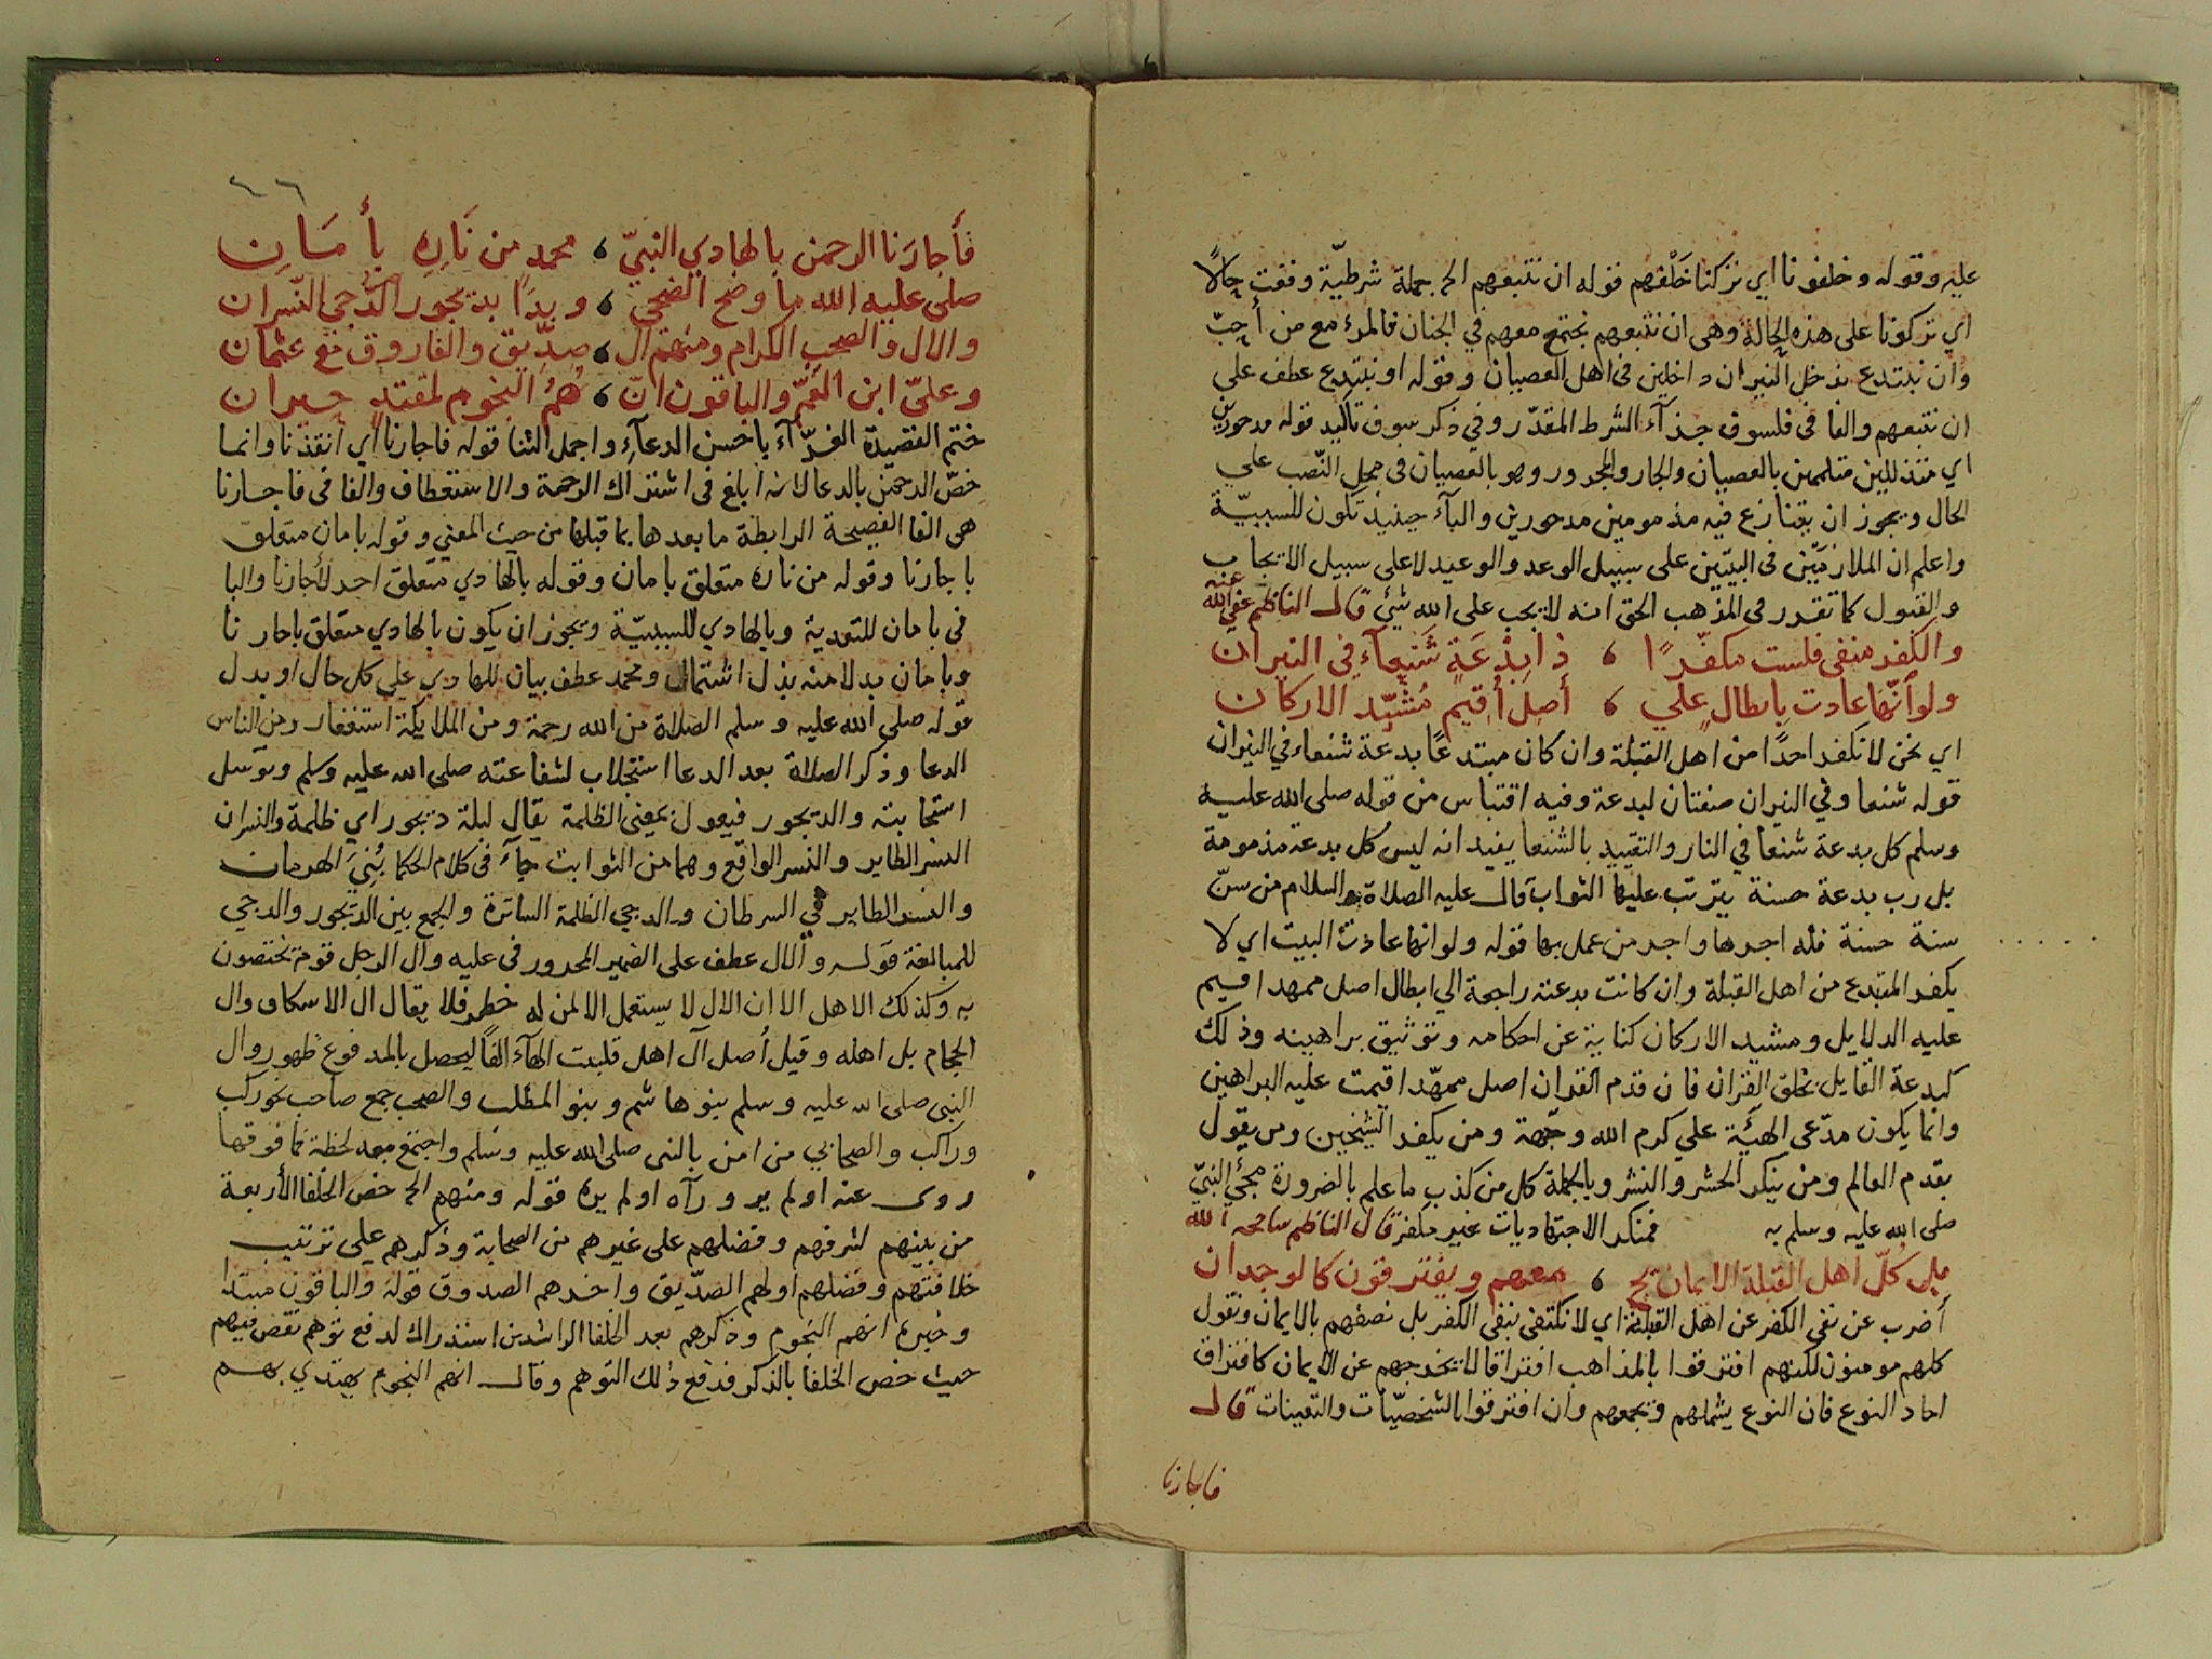 عليه وقوله وخلفونا اي نتركنا خَلْفهم قوله ان نتبعهم الخ جملة شرطيّة وقعت حالاً
اي تركونا على هذه الحالة وهى ان نتبعهم نجتمع معهم في الجنان فالمرء مع من أحبّ
وان نبتدع ندخل النيران داخلين فى اهل العصيان وقوله او نبتدع عطف على
ان نتبعهم والفا فى فلسوف جزآء الشرط المقدّر وفي ذكر سوف تاكيد قوله مدحورين
اي متذللين متلبسين بالعصيان والجار والمجرور وهو بالعصيان فى محل النّصب على
الحال ويجوز ان يتنازع فيه مذمومين مدحورين والبآء حينيذ تكون للسببيّة
واعلم ان الملازميّتين فى البيتين على سبيل الوعد والوعيد لا على سبيل الايجاب
والقبول كما تقرر فى المذهب الحق انه لا يجب على الله شئ قال الناظم عفى الله عنه
والكفر منفى فلست مكفّرًا ، ذا بِدْعَةٍ شَنْعآءِ فِى النيران
ولوأنّها عادت بابطال على ، أصلٍ أُقيم مُشَيّد الاركان
اي نحن لا نكفر احدًا من اهل القبلة وان كان مبتدعًا بدعة شنعاء في النيران
قوله شنعا وفي النيران صفتان لبدعة وفيه اقتباس من قوله صلى الله عليه
وسلم كل بدعة شنعا في النار والتقييد بالشنعا يفيد انه ليس كل بدعة مذمومة
بل رب بدعة حسنة يترتب عليها الثواب قال عليه الصلاة والسلام من سنّ
سنة حسنة فله اجرها واجر من عمل بها قوله ولوانها عادت البيت اي لا
يكفر المبتدع من اهل القبلة وان كانت بدعته راجعة الي ابطال اصل ممهد اقيم
عليه الدلايل ومشيد الاركان كناية عن احكامه وتوثيق براهينه وذلك
كبدعة القايل بخلق القران فان قدم القران اصل ممهّد اقيمت عليه البراهين
وانما يكون مدّعى الهيّة علي كرم الله وجهه ومن يكفر الشيخين ومن يقول
بقدم العالم ومن ينكر الحشر والنشر وبالجملة كل من كذب ما علم بالضرورة مجئ النبيّ
صلى الله عليه وسلم به فمنكر الاجتهاديات غير مكفر قال الناظم سامحه الله
بل كلّ اهل القبلة الايمان يج ، معهم ويفترقون كالوجدان
أضرب عن نفى الكفر عن اهل القبلة اي لا نكتفى بنفى الكفر بل نصفهم بالايمان ونقول
كلهم مومنون لكنهم افترقوا بالمذاهب افتراقا لا يخرجهم عن الايمان كافتراق
احاد النوع فان النوع يشملهم ويجمعهم وان افترقوا بالشخصيّات والتعينات قال
فاجارنا
٦٦
فَأجارَنا الرحمن بالهادي النبيّ ، محمد من نَارِهِ بأمَانِ
صلى عليه الله ما وضح الضحى ، وبدَا بديجور الدّجى النّسران
والال والصحب الكرام ومنهم ال ، صِدِّيق والفاروق مع عثمان
وعليّ ابن العَمّ والباقون انّ ، هُمُ النجوم لمقتدٍ حيران
ختم القصيدة الغرّآء باحسن الدعآءِ واجمل الثنا قوله فاجارنا اي انقذنا وانما
خصّ الرحمن بالدعا لانه ابلغ فى اشتراك الرحمة والاستعطاف والفا فى فاجارنا
هى الفا الفصيحة الرابطة ما بعدها بما قبلها من حيث المعنى وقوله بامان متعلق
باجارنا وقوله من ناره متعلق بامان وقوله بالهادي متعلق احد لأجارنا والبا
فى بامان للتعدية وبالهادي للسببيّة ويجوز ان يكون بالهادي متعلق باجارنا
وبامان بدلا منه بدل اشتمال ومحمد عطف بيان للهادي على كل حال او بدل
قوله صلى الله عليه وسلم الصلاة من الله رحمة ومن الملايكة استغفار ومن الناس
الدعا وذكر الصلاة بعد الدعا استجلاب لشفاعته صلى الله عليه وسلم وتوسل
استجابته والديجور فيعول بمعنى الظلمة يقال ليلة ديجور اي ظلمة والنسران
النسر الطاير والنسر الواقع وهما من الثوابت جآء فى كلام الحكما بُنِيَ الهرمان
والنسر الطاير في السرطان والدجي الظلمة الساترة والجمع بين الديجور والدجي
للمبالغة قوله والال عطف على الضمير المجرور فى عليه وال الرجل قومه يختصون
به وكذلك الاهل الا ان الال لا يستعمل الا لمن له خطر فلا يقال ال الاسكاف وال
الحجام بل اهله وقيل أصل آل اهل قلبت الهآء الفاً ليحصل بالمدفوع ظهور وال
النبى صلى الله عليه وسلم بنو هاشم وبنو المطلب والصحب جمع صاحب نحو ركب
وراكب والصحابي من امن بالنبى صلى الله عليه وسلم واجتمع معه لحظة فما فوقها
روى عنه او لم يرو رآه او لم يره قوله ومنهم الخ خص الخلفا الأربعة
من بينهم لشرفهم وفضلهم على غيرهم من الصحابة وذكرهم على ترتيب
خلافتهم وفضلهم اولهم الصدّيق واخرهم الصدوق قوله والباقون مبتدا
وخبره انهم النجوم وذكرهم بعد الخلفا الراشدين استدراك لدفع توهم نقص فيهم
حيث خص الخلفا بالذكر فدفع ذلك التوهم وقال انهم النجوم يهتدي بهم